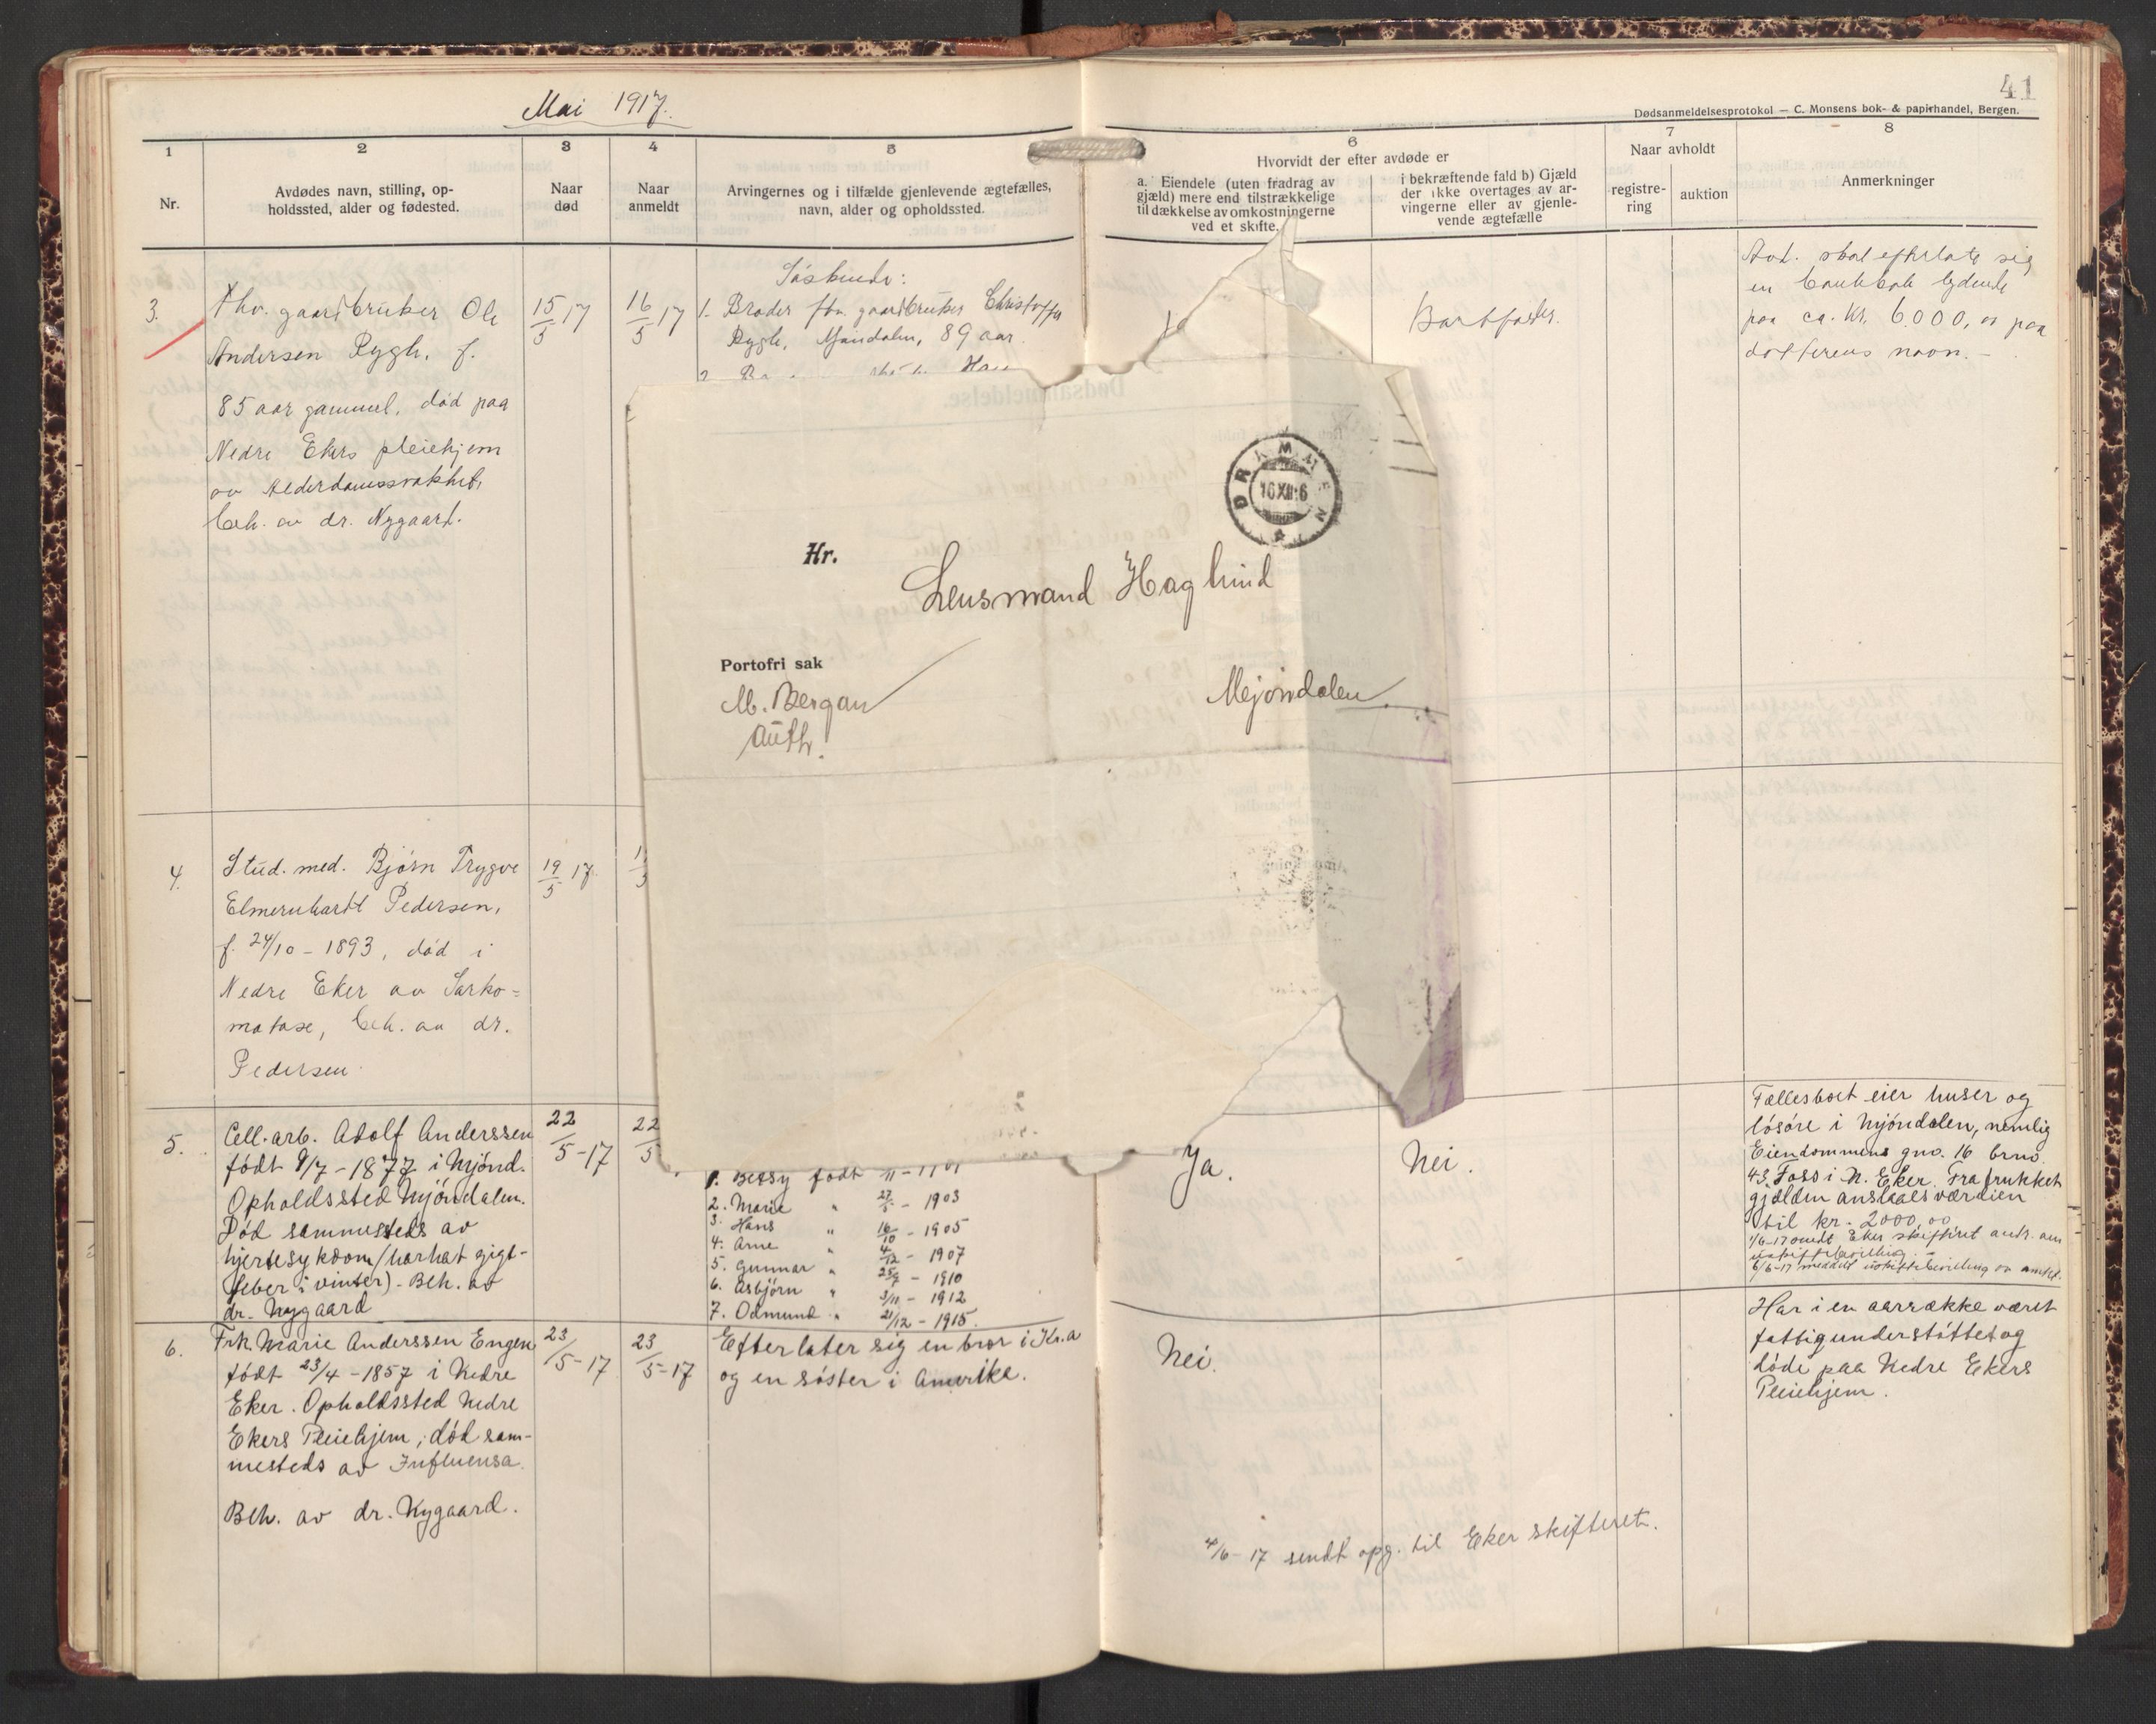 Mai 1917.
41
Dødsanmeldelsesprotokol — C. Monsens bok- & papirhandel, Bergen.
1
2
3
4
5
6
7
8
Nr.
Avdødes navn, stilling, op-
holdssted, alder og fødested.
Naar
død
Naar
anmeldt
Arvingernes og i tilfælde gjenlevende ægtefælles,
navn, alder og opholdssted.
Hvorvidt der efter avdøde er
a. Eiendele (uten fradrag av
gjæld) mere end tilstrækkelige
til dækkelse av omkostningerne
ved et skifte.
i bekræftende fald b) Gjæld
der ikke overtages av ar-
vingerne eller av gjenle-
vende ægtefælle
Naar avholdt
registre-
ring
auktion
Anmerkninger
3.
Fhv. gaardbruker Ole
Andersen Rygh, f.
85 aar gammel, død paa
Nedre Ekers pleiehjem
av Alderdomssvakhet,
beh. av dr. Nygaard.
15/5 17
16/5 17
Søskende:
1. Broder fhv. gaardbruker Christoffer
Rygh, Mjøndalen, 89 aar.
2.
Ja
Bortfalder.
Avd. skal efterlate sig
en bankbok lydende
paa ca. Kr. 6.000, og paa
datterens navn. -
Hr.
Lensmand Haglund
Portofri sak
M. Bergan
Auth.
Mjøndalen.
DRAMMEN
16 XII 16
4.
Stud. med. Bjørn Trygve
Elmernhardt Pedersen,
f. 24/10 - 1893, død i
Nedre Eker av Sarko-
matose, beh. av dr.
Pedersen.
19/5 17.
5.
Cell. arb. Adolf Anderssen
født 9/7 - 1877 i Mjønd.
Opholdssted Mjøndalen.
Død sammesteds av
hjertesykdom (har hat gigt-
feber i vinter) - Beh. av
dr. Nygaard
22/5-17
22/5
1. Bessy født
2. Marie " 27/5 - 1903
3. Hans " 16/10 - 1905
4. Arne " 4/12 - 1907
5. Gunnar " - 1910
6. Asbjørn " 3/11 - 1912
7. Odmund " 21/12 - 1915.
Ja.
Nei.
Fællesboet eier huser og
løsøre i Mjøndalen, nemlig
Eiendommens gno. 16 brno.
43, Foss i N. Eker. Fratrukket
gjælden anslaaes værdien
til kr. 2000,00
1/6-17 sendt Eker skifteret andr. om
uskiftebevilling. -
6/6-17 meddelt uskiftebevilling av amtet.
6.
Frk. Marie Anderssen Engen
født 23/4 - 1857 i Nedre
Eker. Opholdssted Nedre
Ekers Pleiehjem, død sam-
mesteds av Influensa.
Beh. av dr. Nygaard.
23/5-17
23/5-17
Efterlater sig en bror i Kr.a
og en søster i Amerika.
Nei.
Har i en aarrække været
fattigunderstøttet og
døde paa Nedre Ekers
Pleiehjem.
4/6-17 sendt opg. til Eker skifteret.